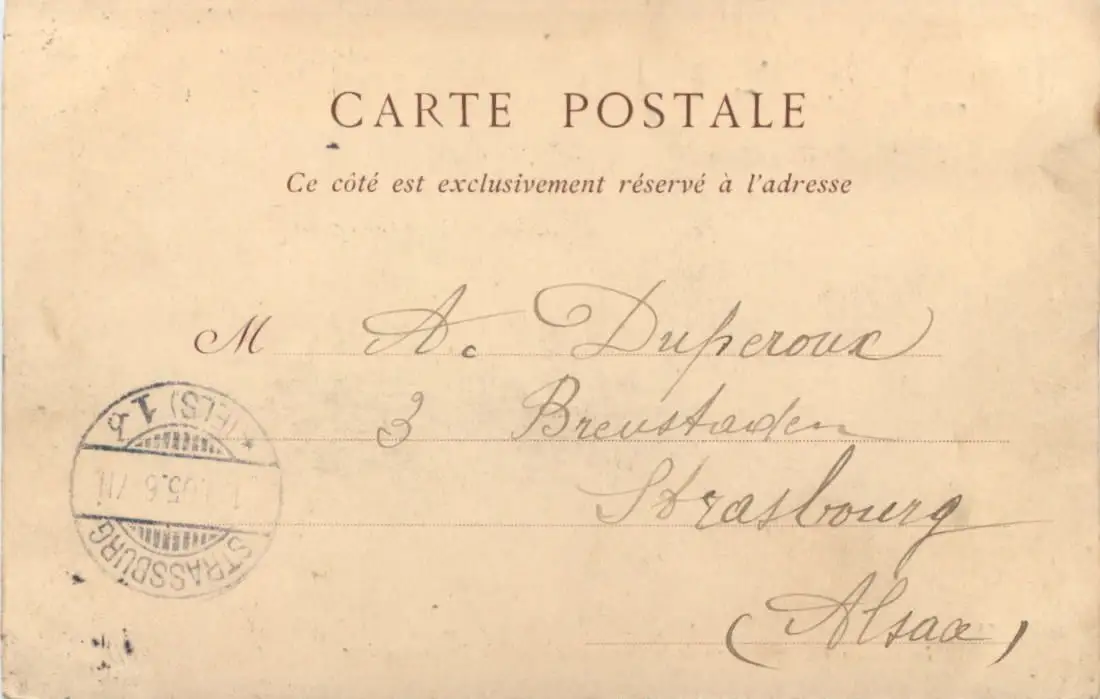 CARTE POSTALE
Ce côté est exclusivement réservé à l'adresse
M A. Duperoux
3 Breustaden
Strasbourg
(Alsace)
STRASSBURG
* (ELS) 1 b
.05.6-7N